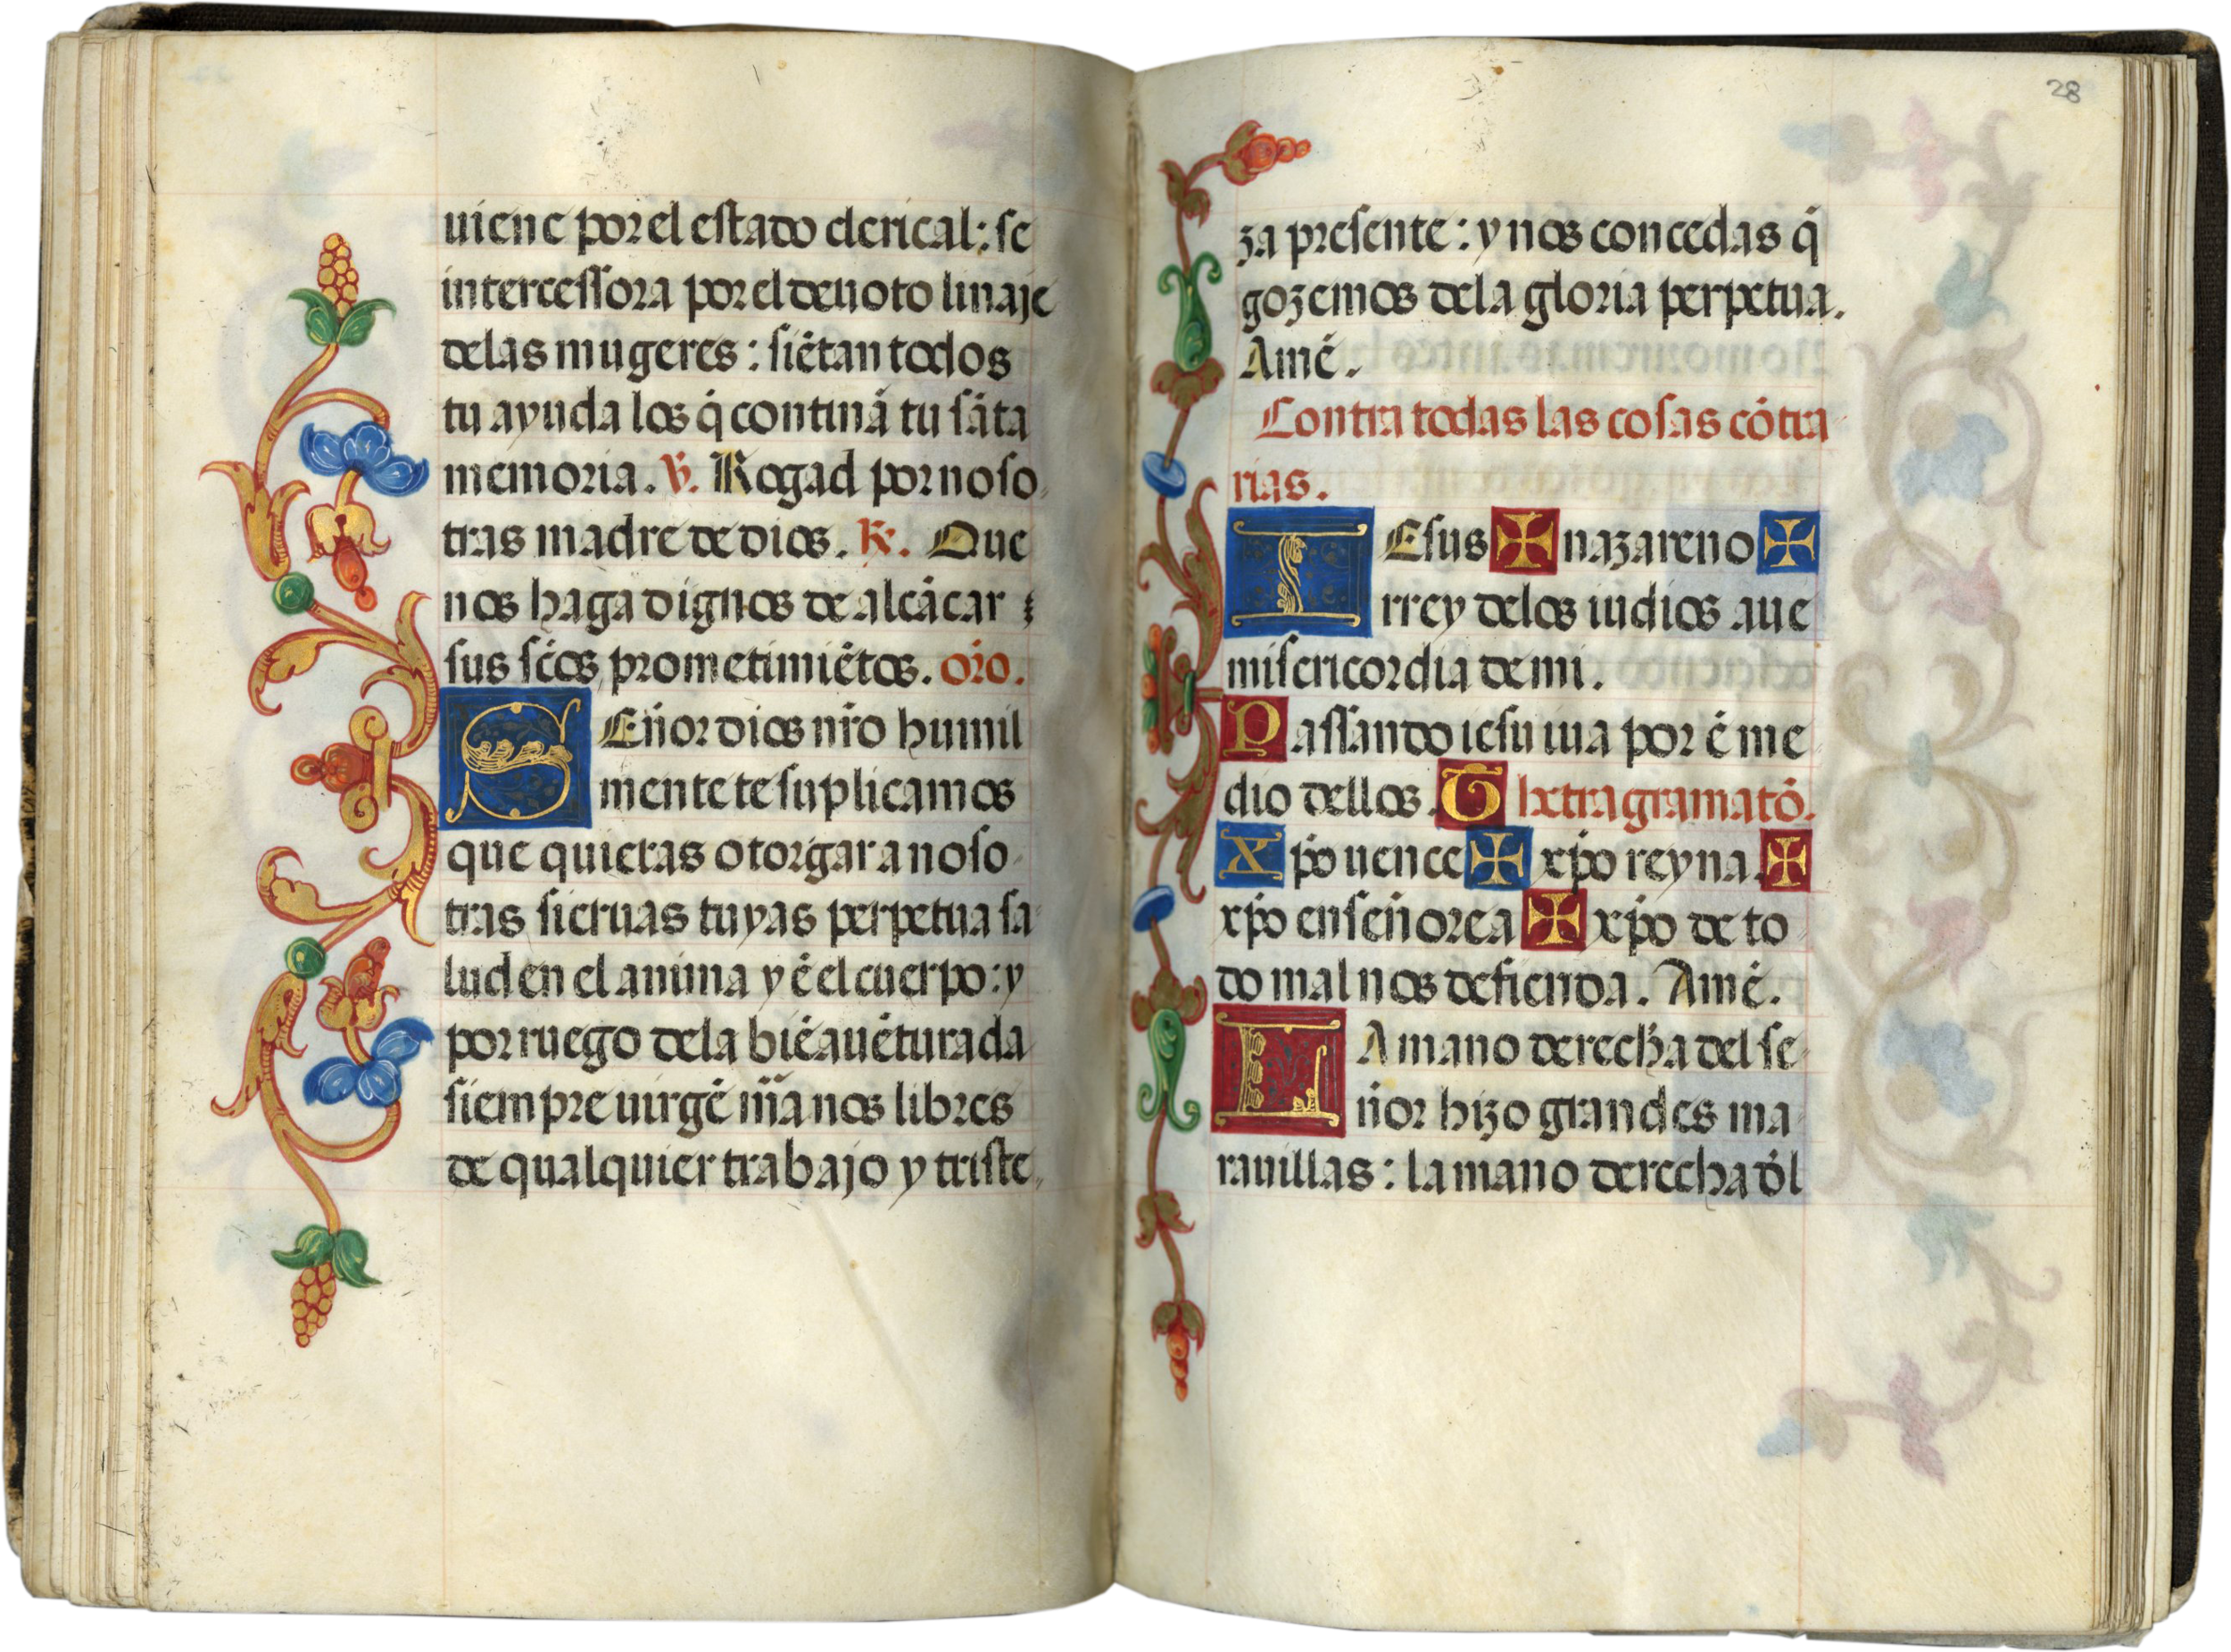 uiene por el estado clerical: se
intercessora por el deuoto linaje
delas mugeres: siẽtan todos
tu ayuda los q̃ continã tu sãta
memoria. V. Rogad por noso
tras madre de dios. R. Que
nos haga dignos de alcãcar
sus sc̃os prometimiẽtos. or̃o.
SEñor dios nr̃o humil
mente te suplicamos
que quieras otorgar a noso
tras sieruas tuyas perpetua sa
lud en el anima y ẽ el cuerpo: y
por ruego dela biẽauẽturada
siempre uirgẽ mr̃a nos libres
de qualquier trabajo y triste
28
za presente: y nos concedas q̃
gozemos dela gloria perpetua.
Amẽ.
Contra todas las cosas cõtra
rias.
IEsus ✠ nazareno ✠
rrey delos iudios aue
misericordia de mi.
Passando iesu iua por ẽ me
dio dellos. Thetragramatõ.
Xp̃o uence ✠ xp̃o reyna. ✠
xp̃o enseñorea ✠ xp̃o de to
do mal nos defienda. Amẽ.
LA mano derecha del se
ñor hizo grandes ma
rauillas: la mano derecha d̃l